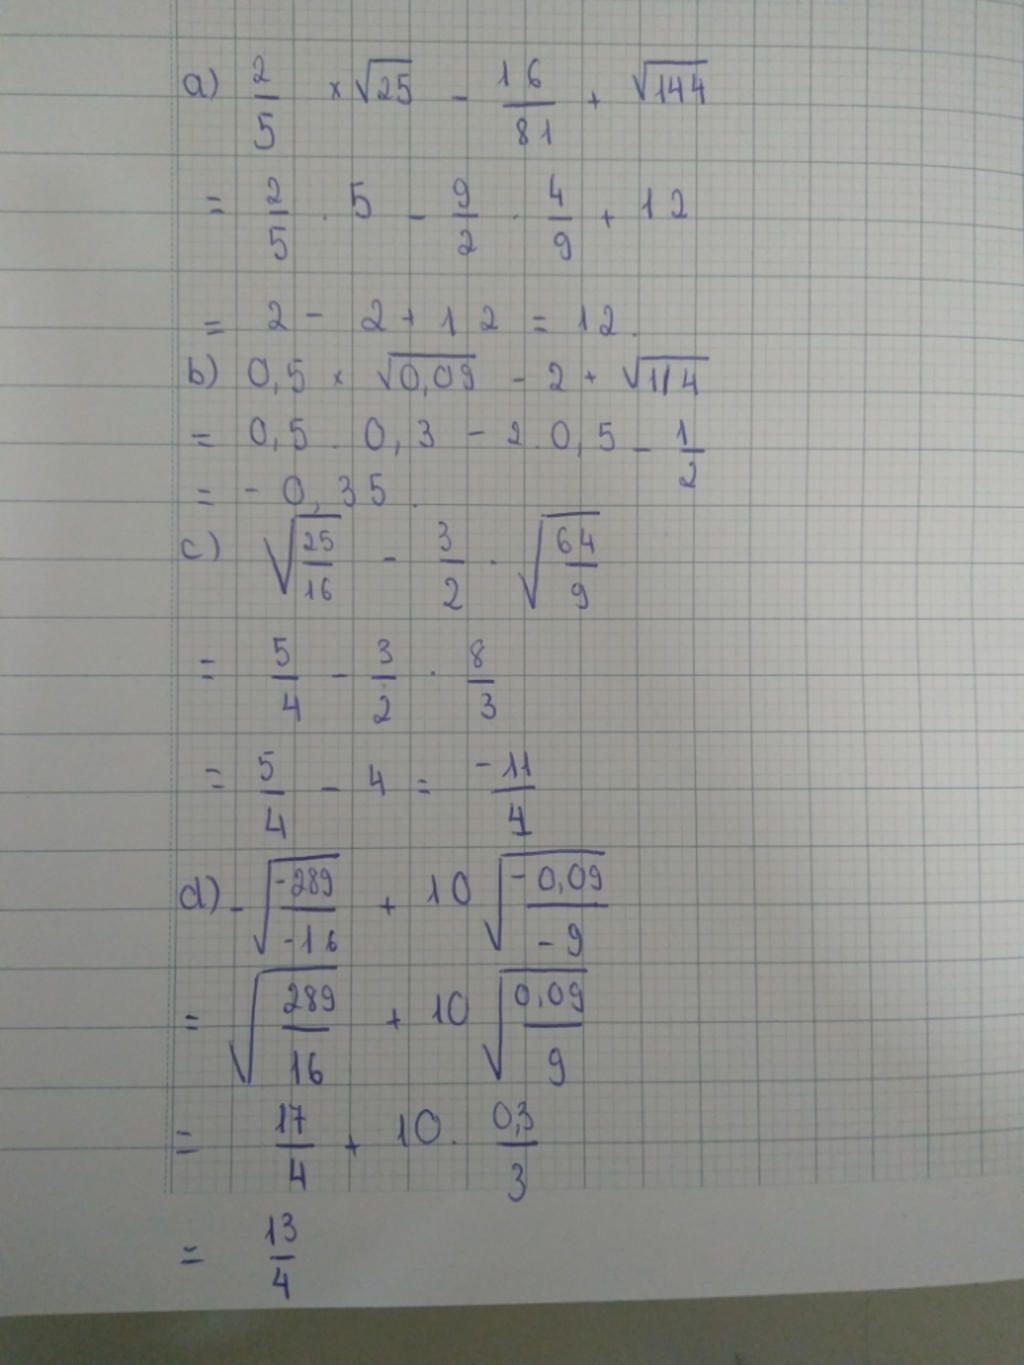 a) 2/5 × √25 - 16/81 + √144
= 2/5 . 5 - 9/2 . 4/9 + 12
= 2 - 2 + 12 = 12.
b) 0,5 × √0,09 - 2 + √1/4
= 0,5 . 0,3 - 2.0,5 - 1/2
= - 0,35.
c) √(25/16) - 3/2 . √(64/9)
= 5/4 - 3/2 . 8/3
= 5/4 - 4 = -11/4
d) -√(-289/-16) + 10 √(-0,09/-9)
= √(289/16) + 10 √(0,09/9)
= 17/4 + 10. 0,3/3
= 13/4